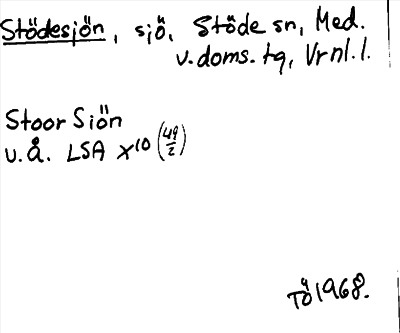 Stödesjön, sjö, Stöde sn, Med.
v. doms. tg, Vrnl. l.
Stoor Siön
u. å. LSA X10 (49/2)
TÖ 1968.